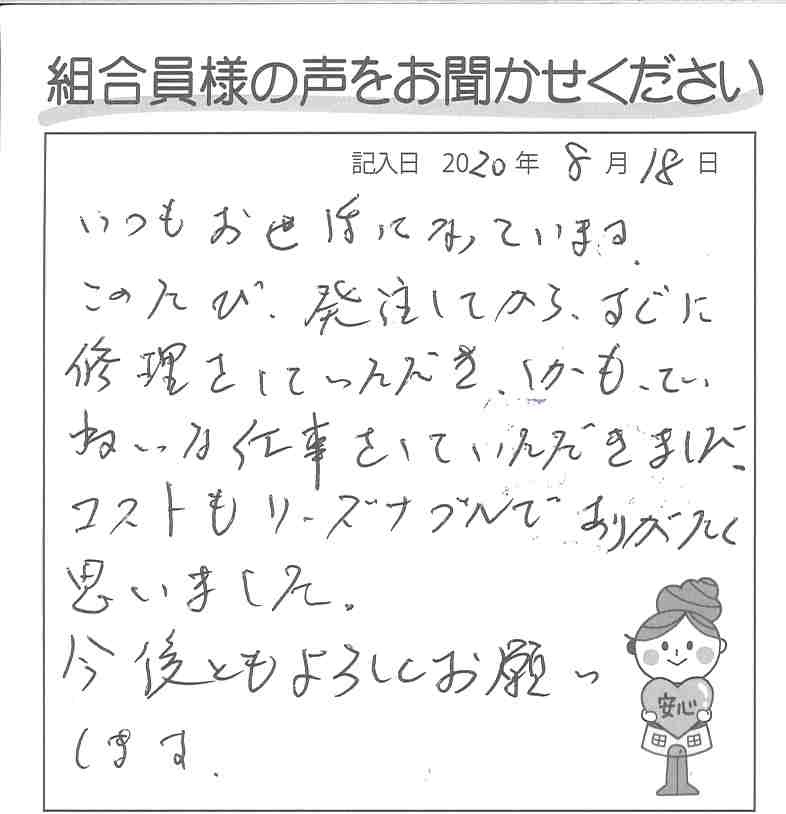 組合員様の声をお聞かせください
記入日 2020年 8月18日
いつもお世ほになっています.
このたび、発注してから、すぐに
修理をしていただき、しかも、てい
ねいな仕事をしていただきました。
コストもリーズナブルでありがたく
思いました。
今後ともよろしくお願い
します.
安心